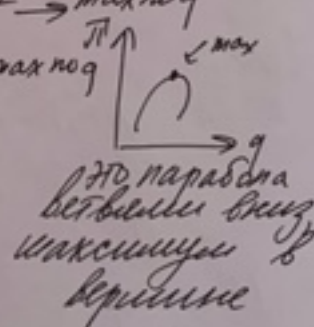 → max по q
π
max
max по q
q
это парабола
ветвями вниз,
максимум в
вершине